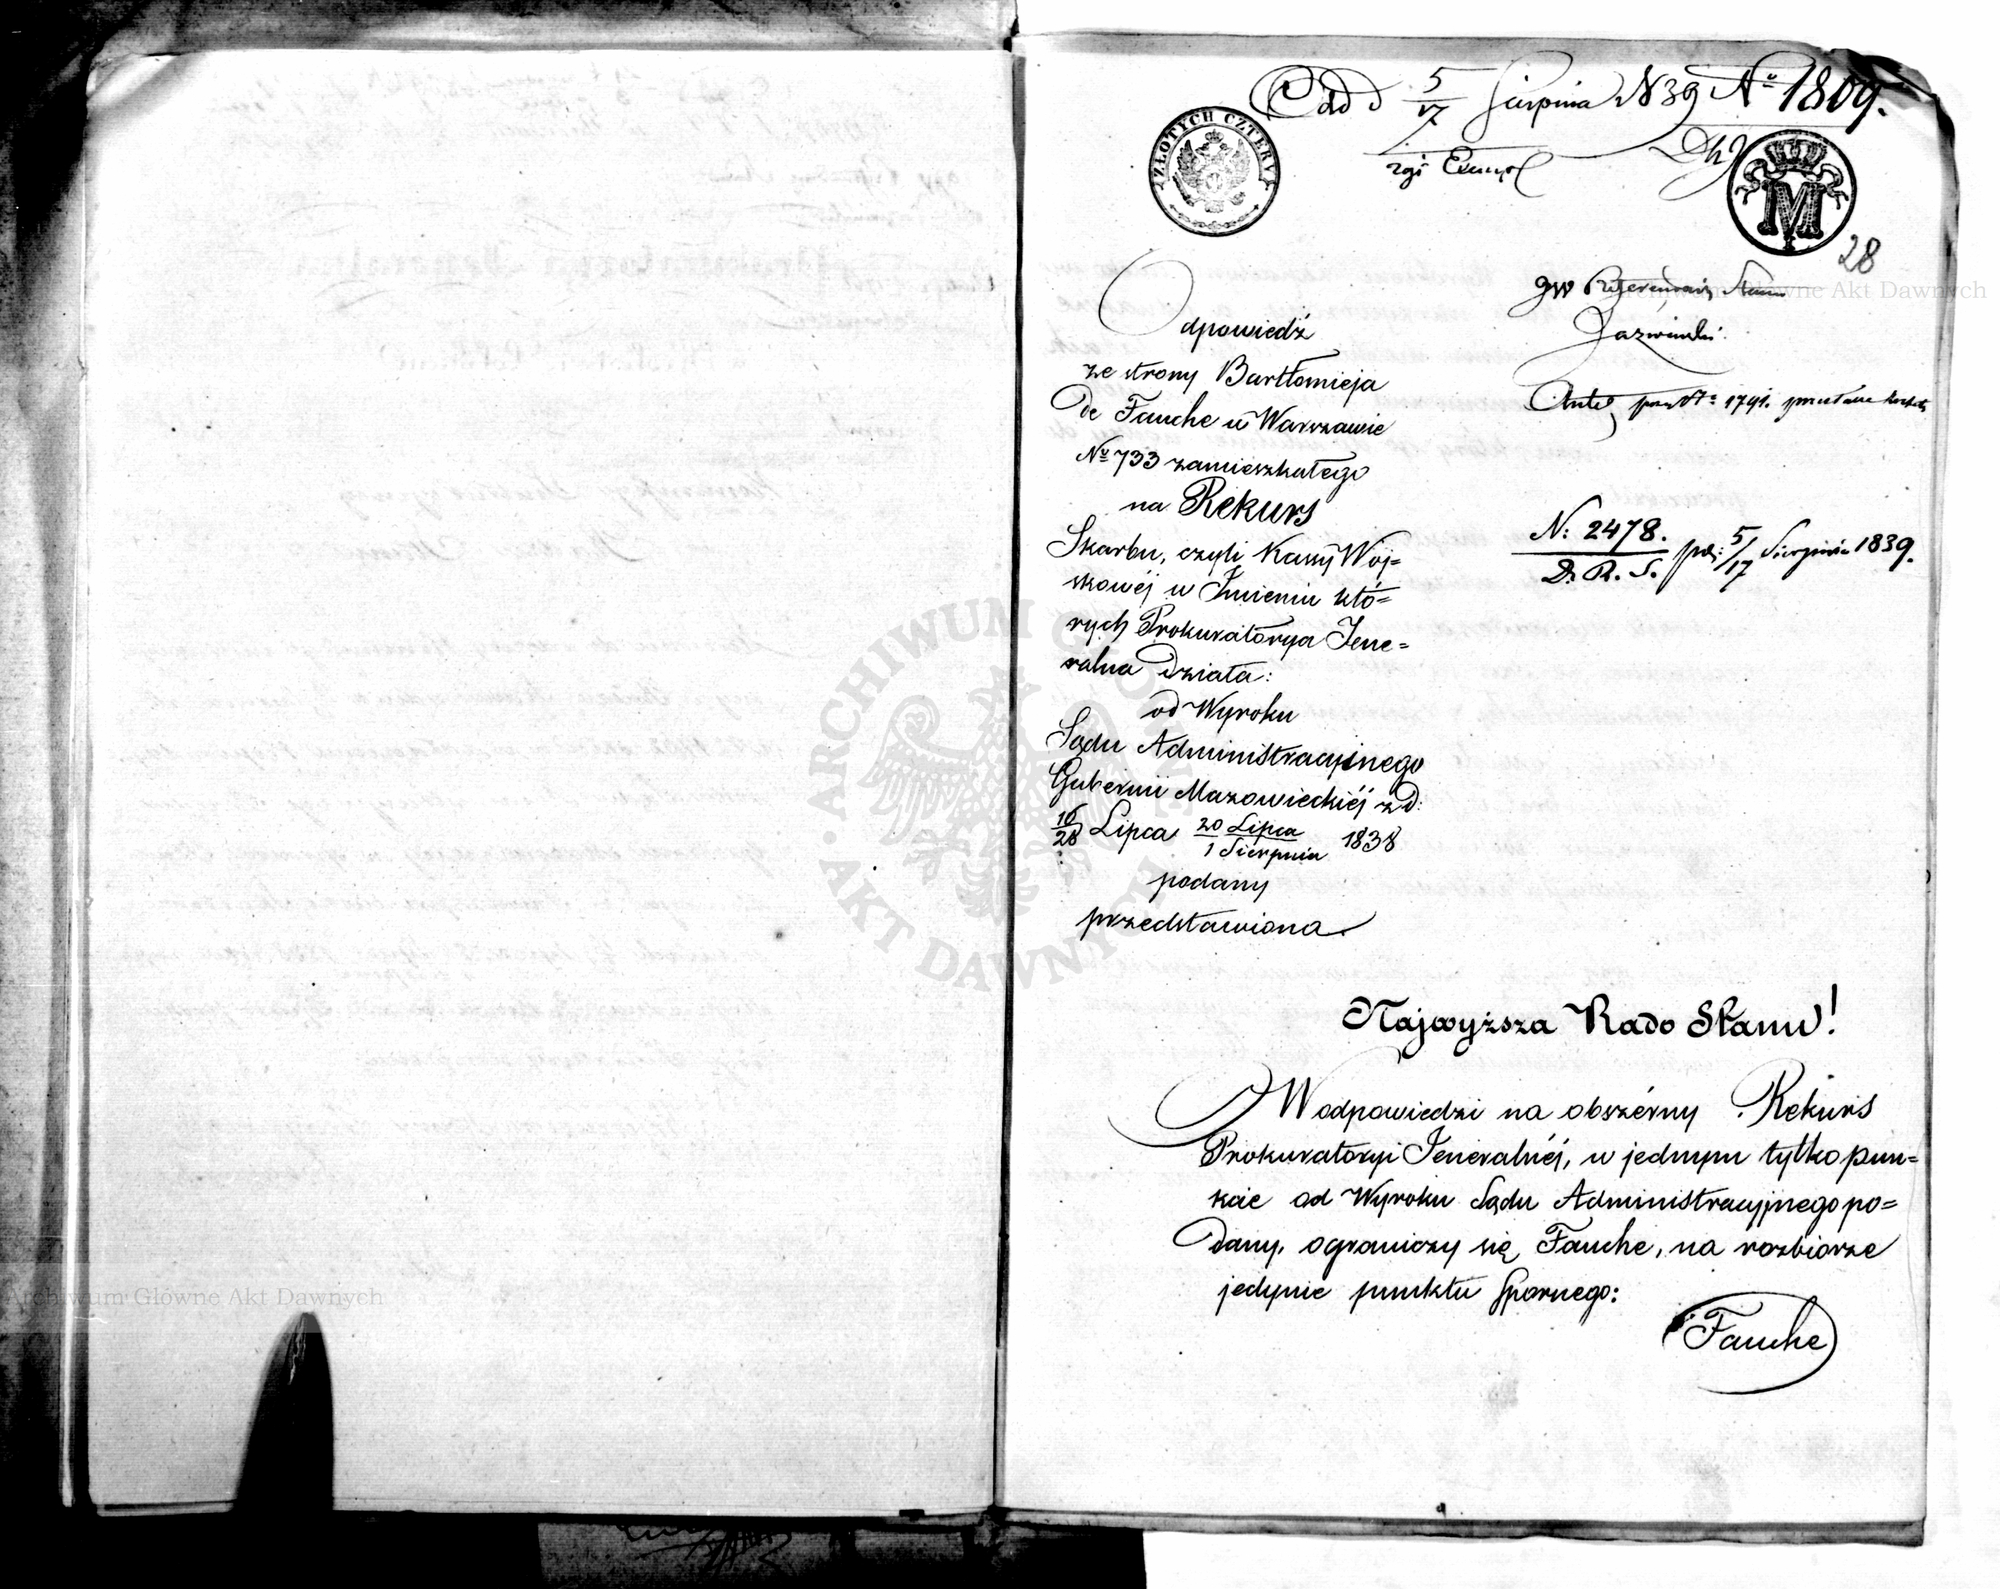 d 5/17 Sierpnia 1839 No 1809.
ZŁOTYCH CZTERY
M
28
JW Referendarz Stanu
Archiwum Główne Akt Dawnych
No 1791.
Odpowiedź
ze strony Bartłomieja
de Fauche w Warszawie
No 733 zamieszkałego
na Rekurs
Skarbu, czyli Kassy Woj=
skowéj w Imieniu któ=
rych Prokuratorya Jene=
ralna działa:
od Wyroku
Sądu Administracyjnego
Gubernii Mazowieckiéj z d:
16/28 Lipca 20 Lipca/1 Sierpnia 1838
podany
przedstawiona.
N: 2478.
D. R. S. 5/17 Sierpnia 1839.
Najwyższa Rado Stanu!
W odpowiedzi na obszérny Rekurs
Prokuratoryi Jeneralnéj, w jednym tylko pun=
kcie od Wyroku Sądu Administracyjnego po=
dany, ograniczy się Fauche, na rozbiorze
jedynie punktu spornego:
Fauche
ARCHIWUM GŁÓWNE AKT DAWNYCH
Archiwum Główne Akt Dawnych